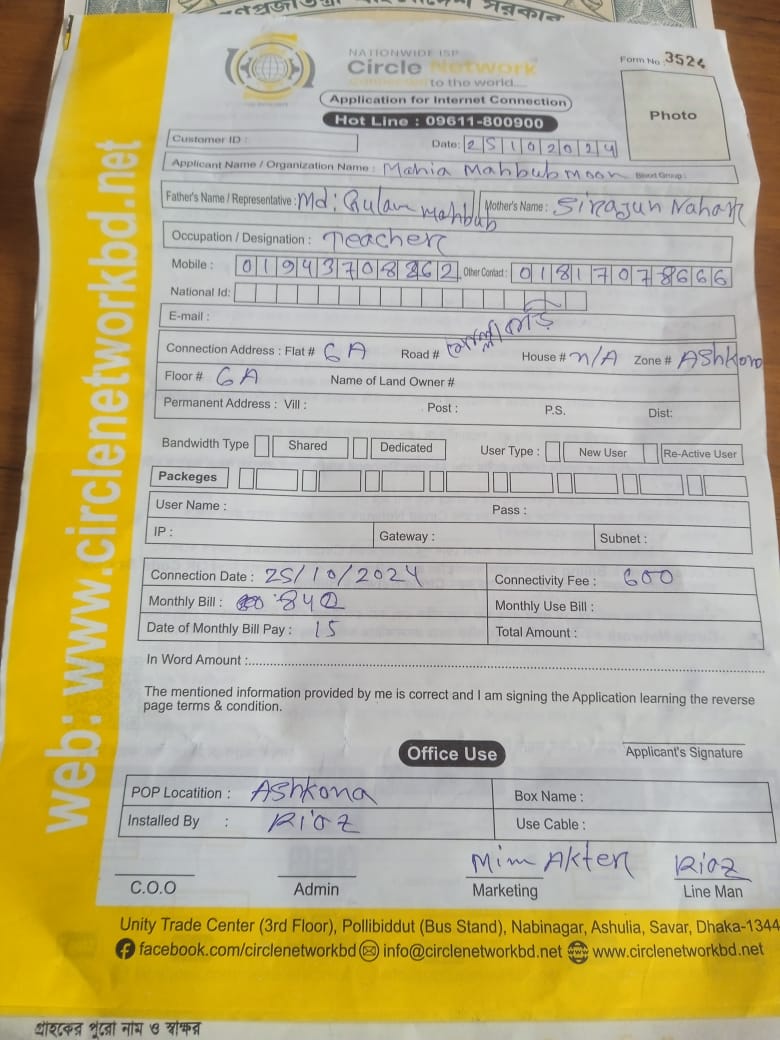 গণপ্রজাতন্ত্রী বাংলাদেশ সরকার
NATIONWIDE ISP
Circle Network
Connected to the world....
Form No. 3524
Application for Internet Connection
Hot Line : 09611-800900
Photo
Customer ID :
Date: 25102024
Applicant Name / Organization Name : Mahia Mahbub Moon Blood Group :
Father's Name / Representative : Md: Gulam Mahbub Mother's Name : Sirajun Nahar
Occupation / Designation : Teacher
Mobile : 01943708262 Other Contact : 01817078666
National Id:
E-mail :
Connection Address : Flat # 6A Road # House # n/A Zone # Ashkona
Floor # 6A Name of Land Owner #
Permanent Address : Vill : Post : P.S. Dist:
Bandwidth Type Shared Dedicated User Type : New User Re-Active User
Packeges
User Name : Pass :
IP : Gateway : Subnet :
Connection Date : 25/10/2024 Connectivity Fee : 600
Monthly Bill : 840 Monthly Use Bill :
Date of Monthly Bill Pay : 15 Total Amount :
In Word Amount :
The mentioned information provided by me is correct and I am signing the Application learning the reverse
page terms & condition.
Office Use
Applicant's Signature
POP Locatition : Ashkona Box Name :
Installed By : Riaz Use Cable :
Mim Akter Riaz
C.O.O Admin Marketing Line Man
Unity Trade Center (3rd Floor), Pollibiddut (Bus Stand), Nabinagar, Ashulia, Savar, Dhaka-1344
facebook.com/circlenetworkbd info@circlenetworkbd.net www.circlenetworkbd.net
web: www.circlenetworkbd.net
গ্রাহকের পুরো নাম ও স্বাক্ষর